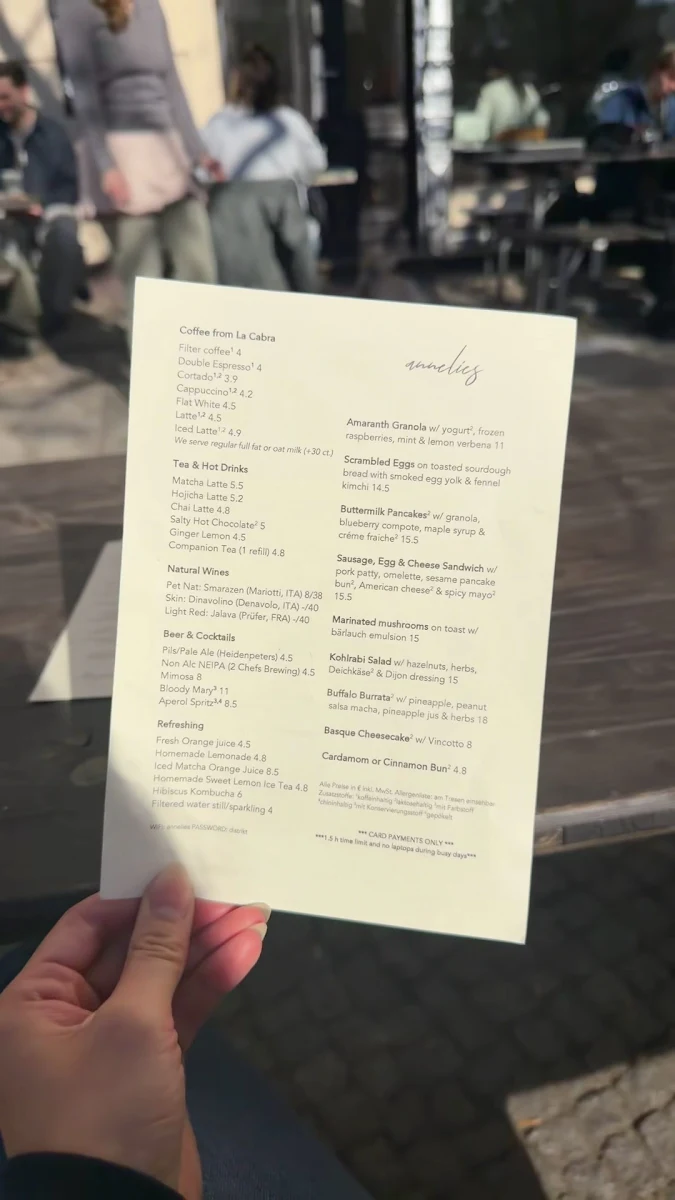 Coffee from La Cabra
Filter coffee¹ 4
Double Espresso¹ 4
Cortado¹,² 3.9
Cappuccino¹,² 4.2
Flat White 4.5
Latte¹,² 4.5
Iced Latte¹,² 4.9
We serve regular full fat or oat milk (+30 ct.)
Tea & Hot Drinks
Matcha Latte 5.5
Hojicha Latte 5.2
Chai Latte 4.8
Salty Hot Chocolate² 5
Ginger Lemon 4.5
Companion Tea (1 refill) 4.8
Natural Wines
Pet Nat: Smarazen (Mariotti, ITA) 8/38
Skin: Dinavolino (Denavolo, ITA) -/40
Light Red: Jalava (Prüfer, FRA) -/40
Beer & Cocktails
Pils/Pale Ale (Heidenpeters) 4.5
Non Alc NEIPA (2 Chefs Brewing) 4.5
Mimosa 8
Bloody Mary³ 11
Aperol Spritz³,⁴ 8.5
Refreshing
Fresh Orange juice 4.5
Homemade Lemonade 4.8
Iced Matcha Orange Juice 8.5
Homemade Sweet Lemon Ice Tea 4.8
Hibiscus Kombucha 6
Filtered water still/sparkling 4
WIFI: annelies PASSWORD:
annelies
Amaranth Granola w/ yogurt², frozen
raspberries, mint & lemon verbena 11
Scrambled Eggs on toasted sourdough
bread with smoked egg yolk & fennel
kimchi 14.5
Buttermilk Pancakes² w/ granola,
blueberry compote, maple syrup &
créme fraiche² 15.5
Sausage, Egg & Cheese Sandwich w/
pork patty, omelette, sesame pancake
bun², American cheese² & spicy mayo²
15.5
Marinated mushrooms on toast w/
bärlauch emulsion 15
Kohlrabi Salad w/ hazelnuts, herbs,
Deichkäse² & Dijon dressing 15
Buffalo Burrata² w/ pineapple, peanut
salsa macha, pineapple jus & herbs 18
Basque Cheesecake² w/ Vincotto 8
Cardamom or Cinnamon Bun² 4.8
Alle Preise in € inkl. MwSt. Allergenliste: am Tresen einsehbar
Zusatzstoffe: ¹koffeinhaltig ²laktosehaltig ³mit Farbstoff
⁴chininhaltig ⁵mit Konservierungsstoff ⁶gepökelt
*** CARD PAYMENTS ONLY ***
***1.5 h time limit and no laptops during busy days***